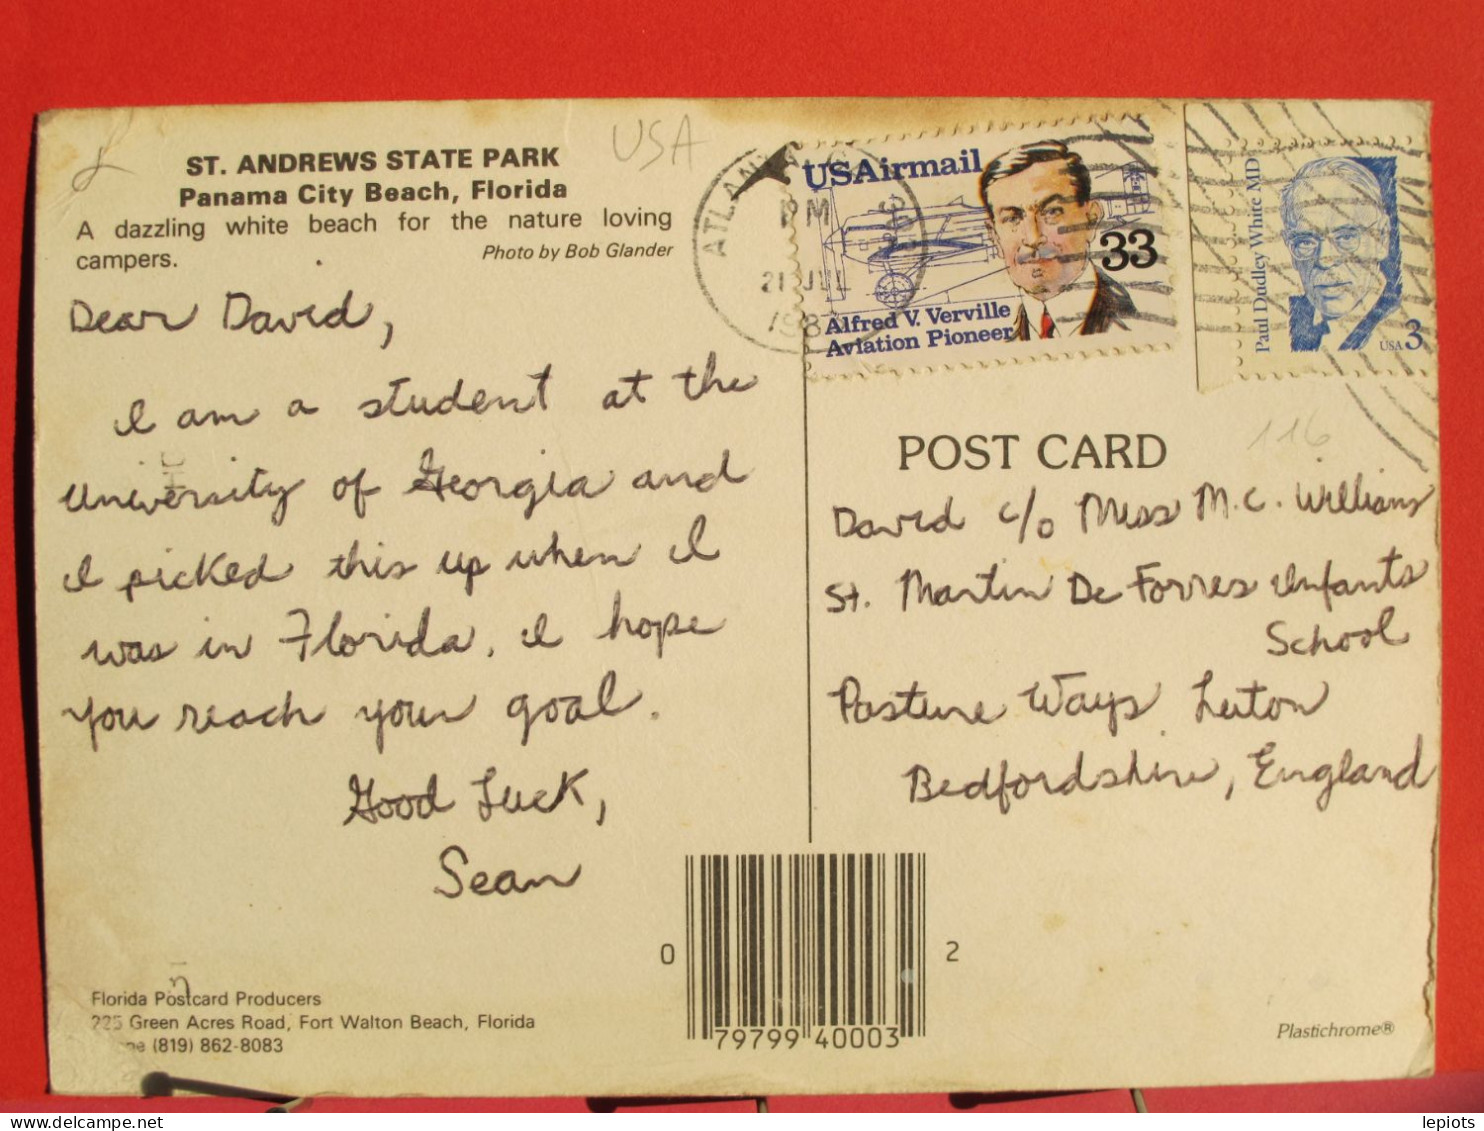 USA
ST. ANDREWS STATE PARK
Panama City Beach, Florida
A dazzling white beach for the nature loving
campers.
Photo by Bob Glander
Dear David,
I am a student at the
University of Georgia and
I picked this up when I
was in Florida. I hope
you reach your goal.
Good Luck,
Sean
Florida Postcard Producers
225 Green Acres Road, Fort Walton Beach, Florida
(819) 862-8083
ATLANTA
PM
21 JUL
USAirmail
33
Alfred V. Verville
Aviation Pioneer
Paul Dudley White MD
USA 3
116
POST CARD
David c/o Miss M.C. Williams
St. Martin De Porres Infants
School
Pasture Ways Luton
Bedfordshire, England
0 79799 40003 2
Plastichrome®
delcampe.net
lepiots